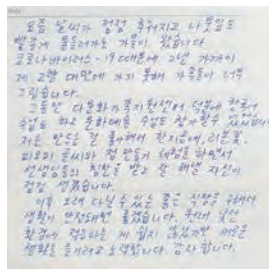 요즘 날씨가 점점 추워지고 나뭇잎도
빨갛게 물들어가는 가을이 왔습니다.
코로나바이러스-19 때문에 2년 가까이
제 고향 대만에 가지 못해 가족들이 너무
그립습니다.
그동안 다문화가족지원센터 덕분에 한국어
수업도 하고 문화예술 수업도 참가할 수 있었습니다.
저는 만드는 걸 좋아해서 한지공예, 리본꽃,
글씨와 만들기 체험을 하면서
선생님들의 칭찬을 받고 잘 해낼 자신이
점점 생겼습니다.
이후 오래 다닐 수 있는 좋은 직장을 구해서
생활이 안정되면 좋겠습니다. 낯선
환경에 적응하는 게 쉽지 않았지만 새로운
생활을 즐기려고 노력합니다. 감사합니다.